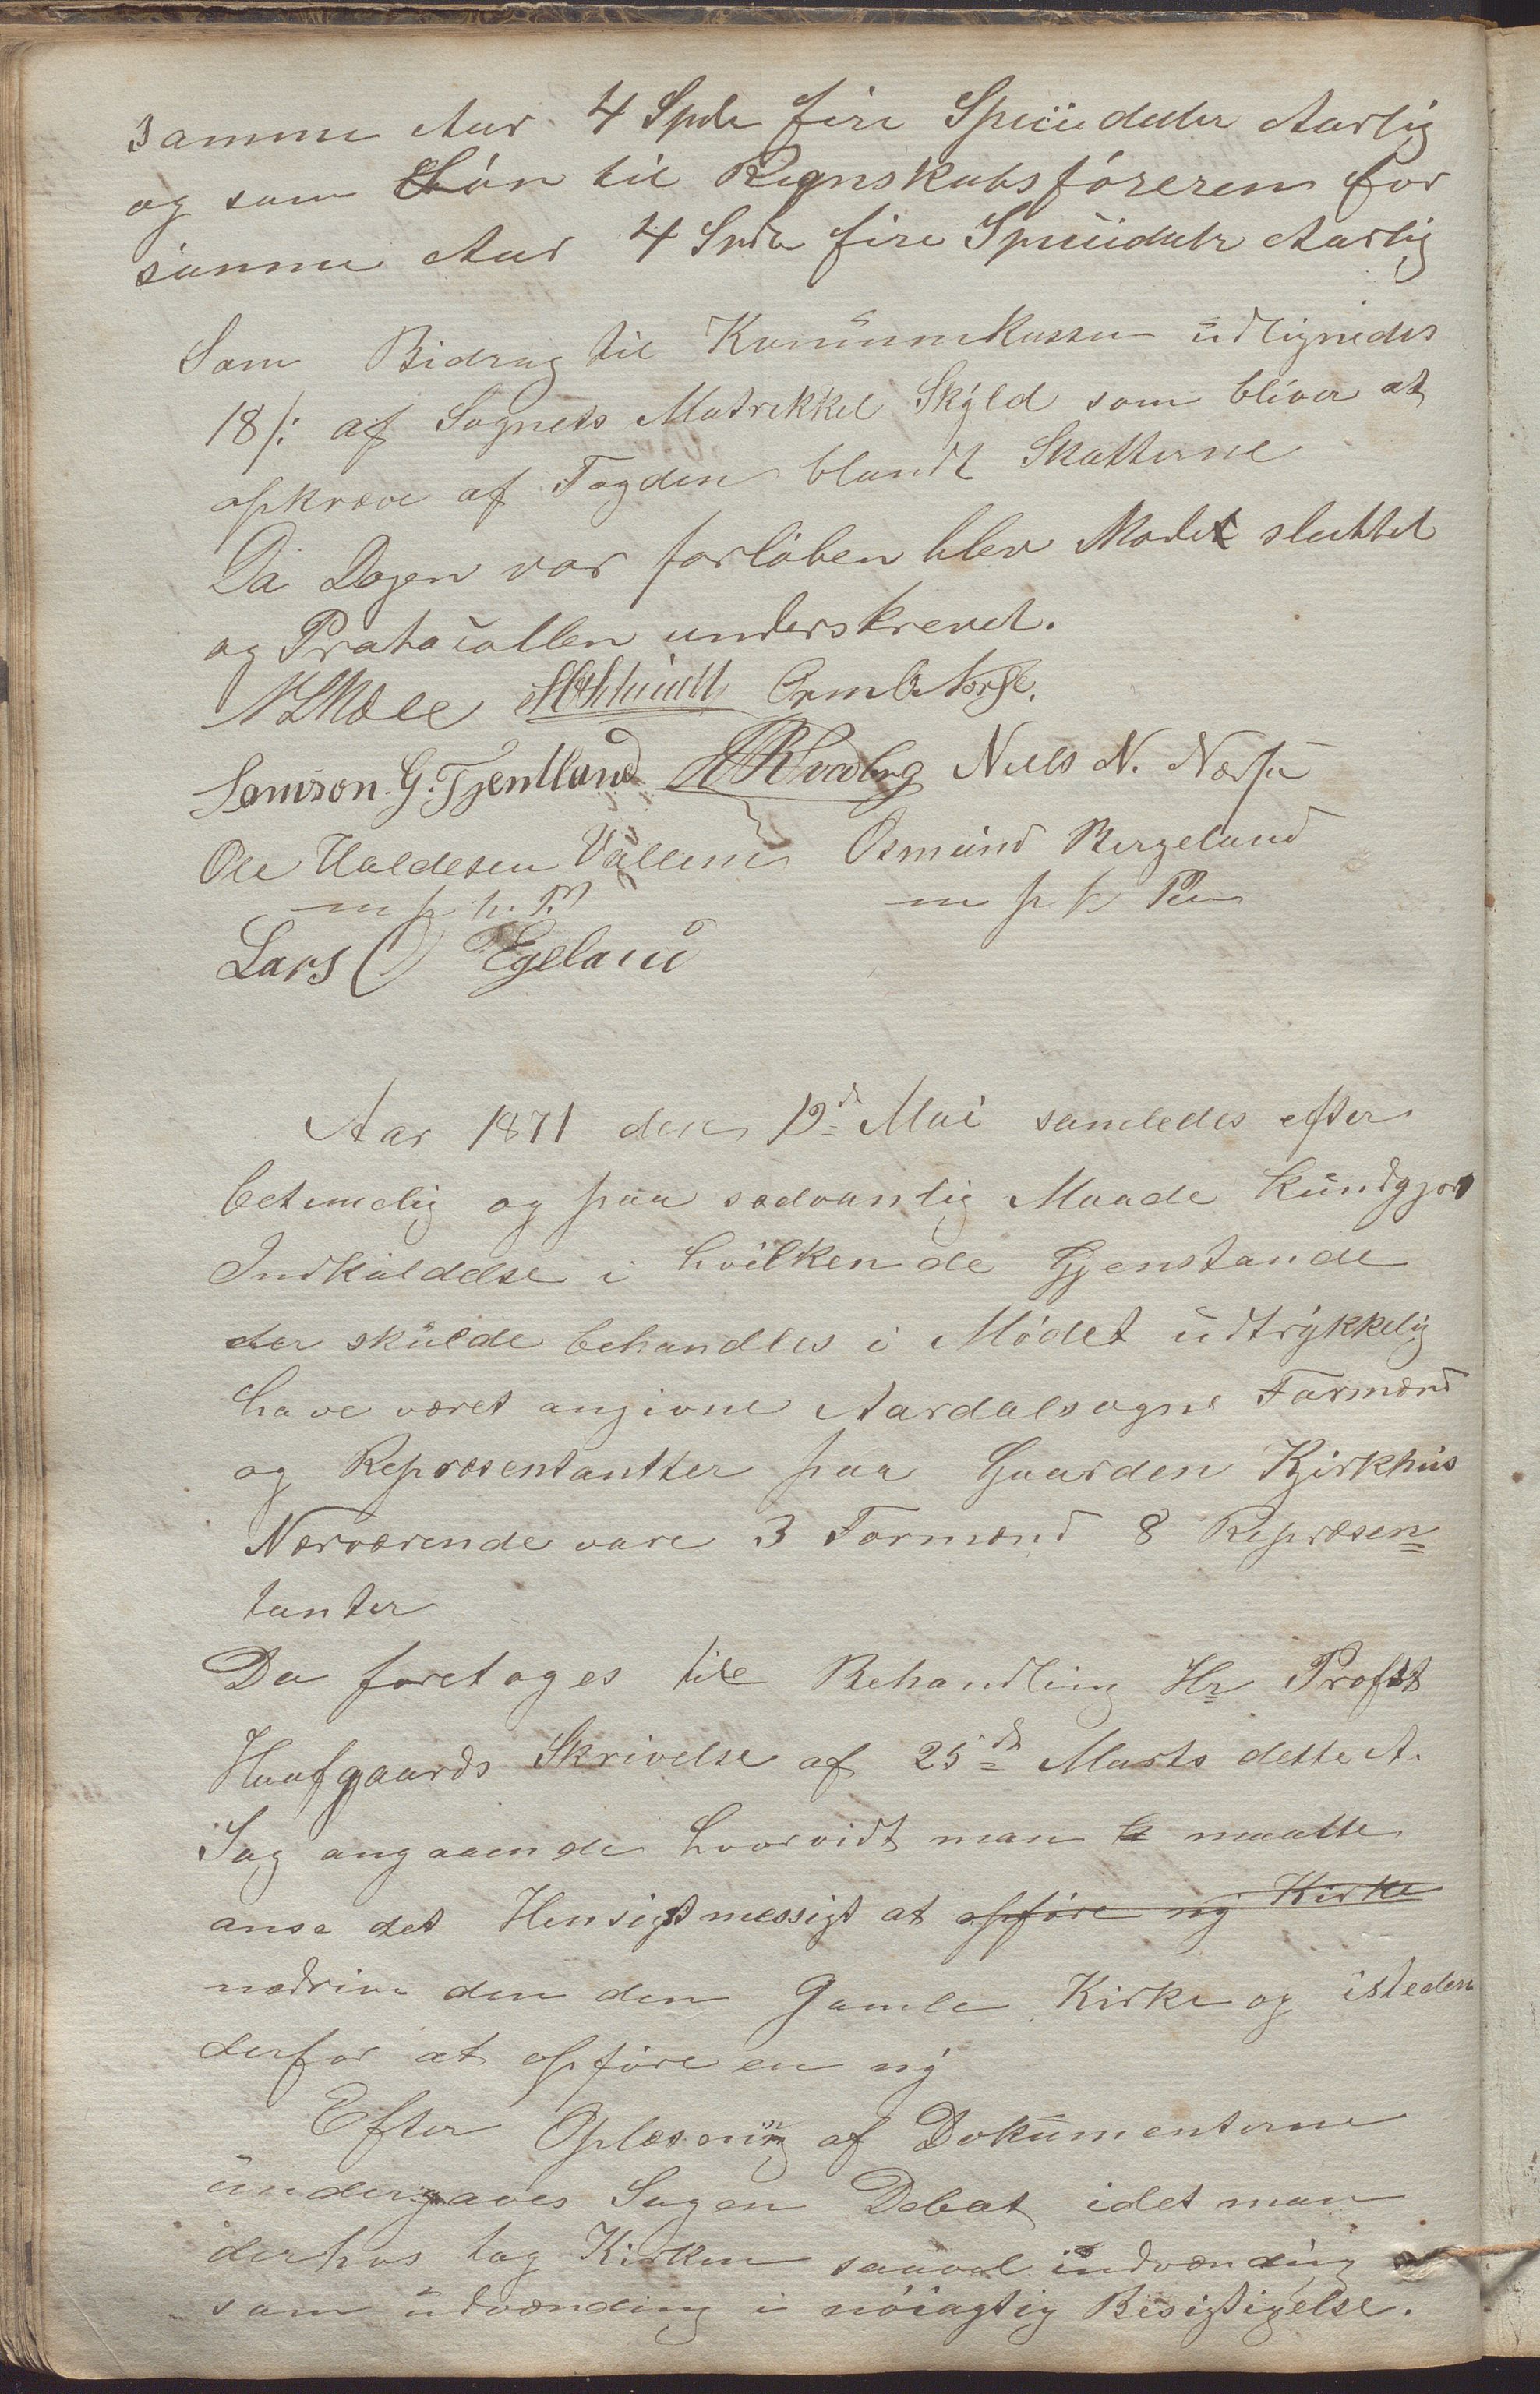 samme Aar 4 Spdr fire Speciedaler Aarlig
og som Løn til Regnskabsføreren for
samme Aar 4 Spdr fire Speciedaler Aarlig
Som Bidrag til Kommunekassen udlignedes
18 /: af Sognets Matrikkel Skyld som bliver at
opkræve af Fogden blandt Skatterne
Da Dagen var forløben blev Mødet sluttet
og Protocollen underskrevet.
N L Mæle Schmidt Orm O. Nørste.
Samson. G. Tjentland Niels N. Nørste
Ole Haldesen Vallem Osmund Bergeland
m p h. P. m p h Pen
Lars O Egeland
Aar 1871 den 12d Mai samledes efter
betimelig og paa sædvanlig Maade kundgjort
Indkaldelse i hvilken de Gjenstande
der skulde behandles i Mødet udtrykkelig
have været angivne Aardalsogns Formænd
og Repræsentantter paa Gaarden Kjirkhus
Nærværende vare 3 Formænd 8 Repræsen=
tanter
Da foretages til Behandling Hr Profst
Haafgaards Skrivelse af 25de Marts dette A.
Sag angaaende hvorvidt man maatte
anse det Hensigtmessigt at opføre ny Kirke
nedrive den den Gamle Kirke og isteden
derfor at opføre en ny
Efter Oplæsning af Dokumenterne
undergaves Sagen Debat idet man
derhos tog Kirken saavel indvænding
som udvænding i nøiagtig Besigtigelse.